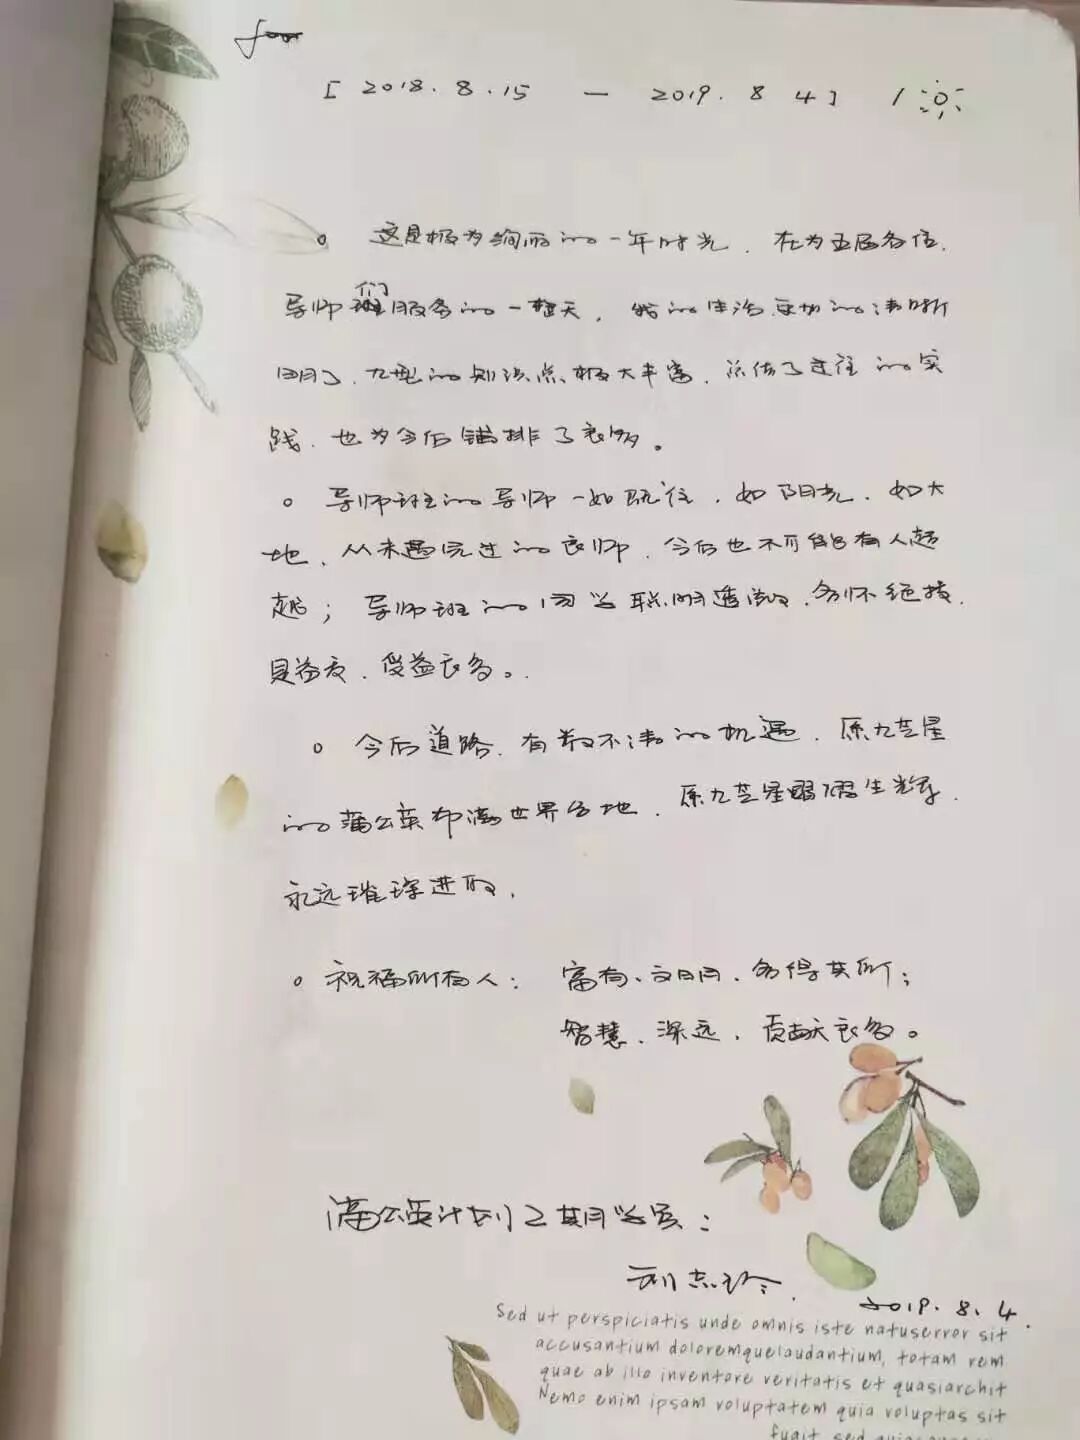 [ 2018.8.15 — 2019.8 4 ] /
。 这是极为绚丽的一年时光，在为五届各位
导师们服务的一整天，我的生活更加的清晰
明了，九型的知识点极大丰富，总结了过往的实
践，也为今后铺排了良多。
。 导师班的导师一如既往，如阳光，如大
地，从未遇见过的良师，今后也不可能有人超
越；导师班的同学聪明透彻，各怀绝技，
是益友，受益良多。
。 今后道路，有数不清的机遇，愿九芒星
的蒲公英布满世界各地，愿九芒星熠熠生光辉，
永远璀璨进取，
。 祝福所有人： 富有、文明，各得其所；
智慧、深远，贡献良多。
蒲公英计划2期学员：
刘志玲
2019.8.4
Sed ut perspiciatis unde omnis iste natuserror sit
accusantium doloremquelaudantium, totam rem
quae ab illo inventore veritatis et quasiarchit
Nemo enim ipsam voluptatem quia voluptas sit
fugit, sed